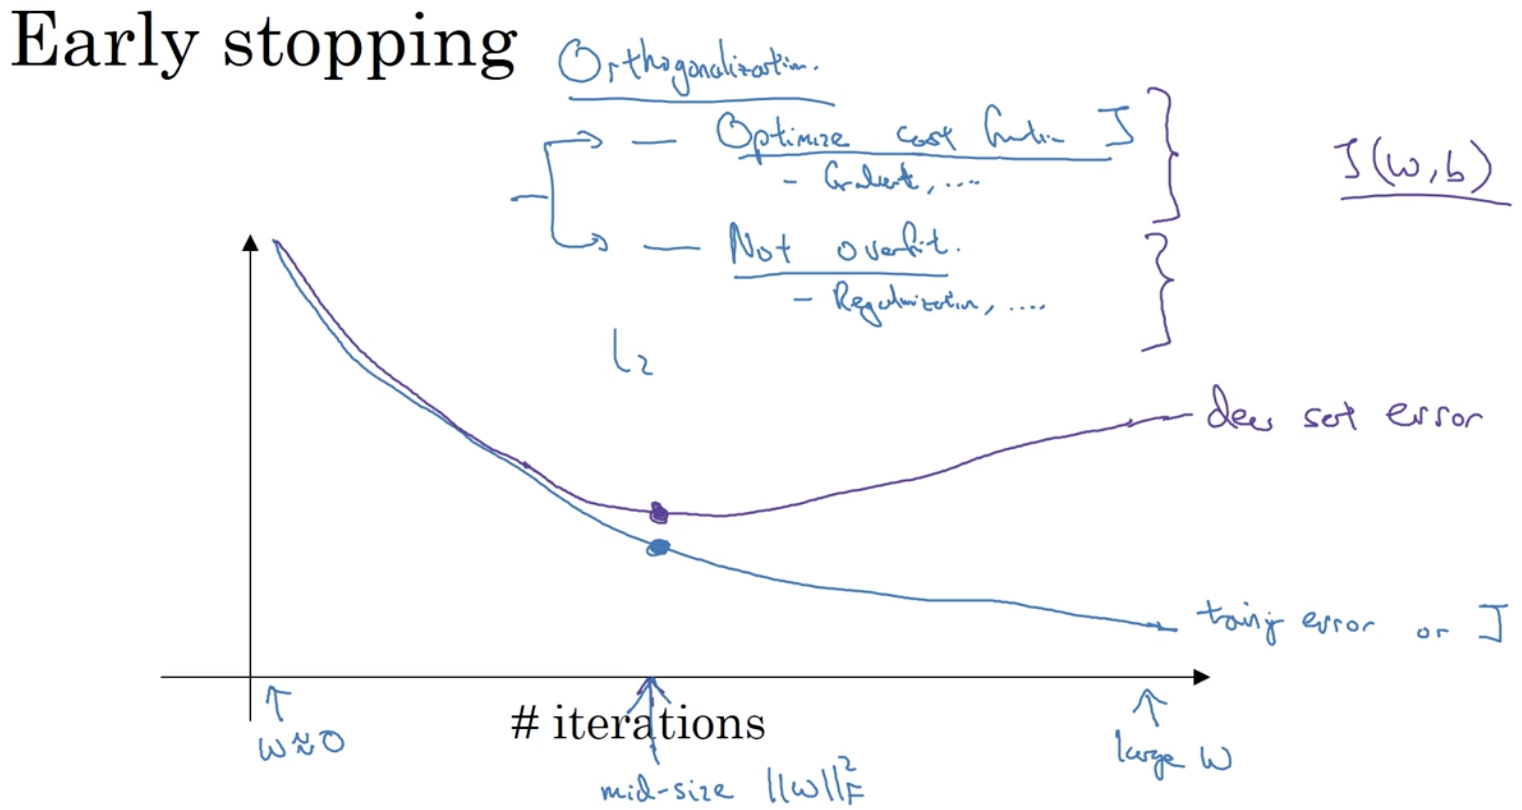 Early stopping
Orthogonalization.
— Optimize cost function J
- Gradient, ....
J(w,b)
— Not overfit.
- Regularization, ....
L2
dev set error
training error or J
# iterations
w≈0
large w
mid-size ||w||²_F